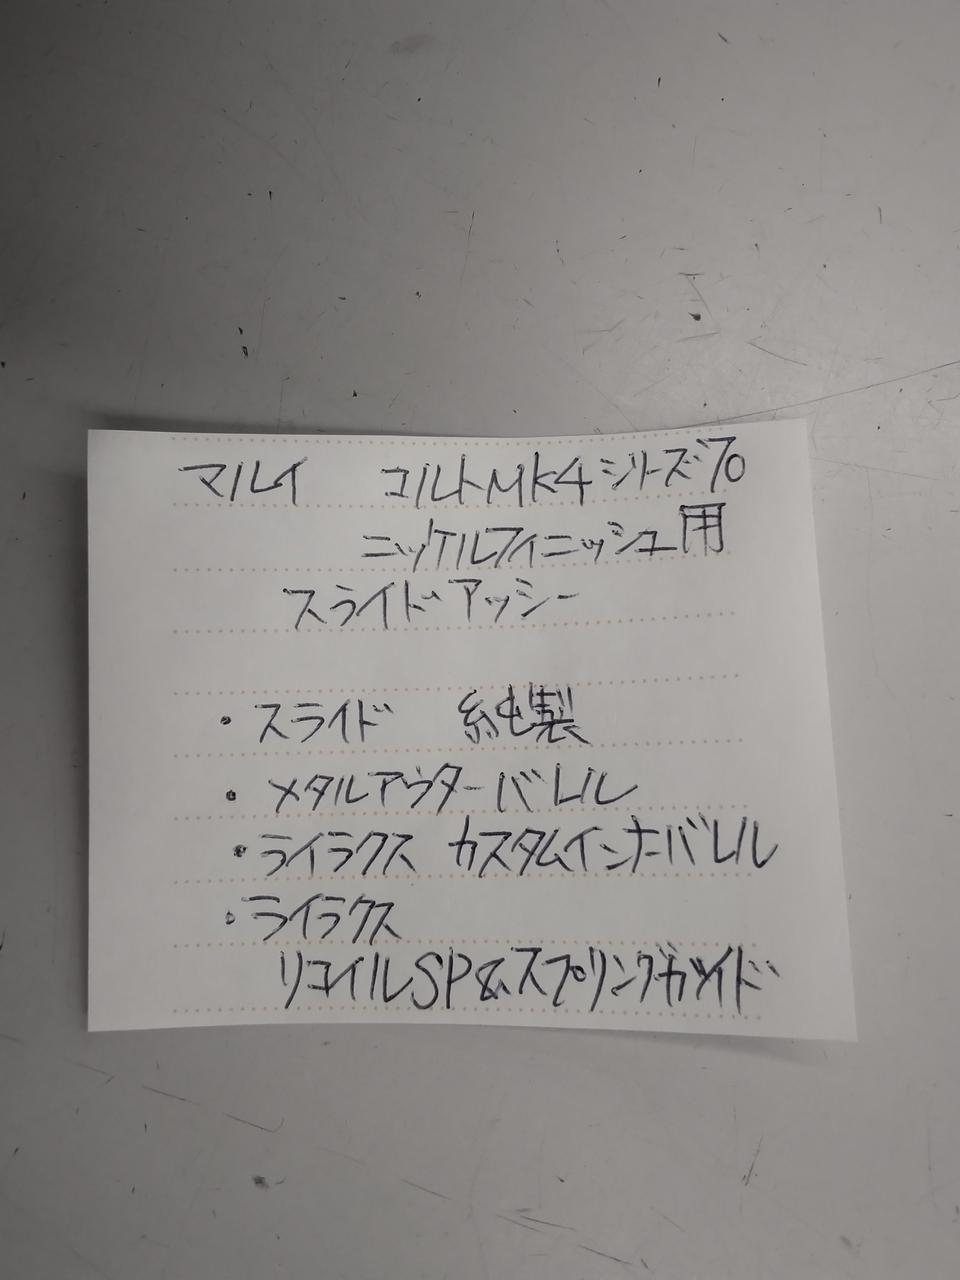 マルイ コルトMK4シリーズ70
ニッケルフィニッシュ用
スライドアッシー
・スライド 純製
・メタルアウターバレル
・ライラクス カスタムインナーバレル
・ライラクス
リコイルSP&スプリングガイド